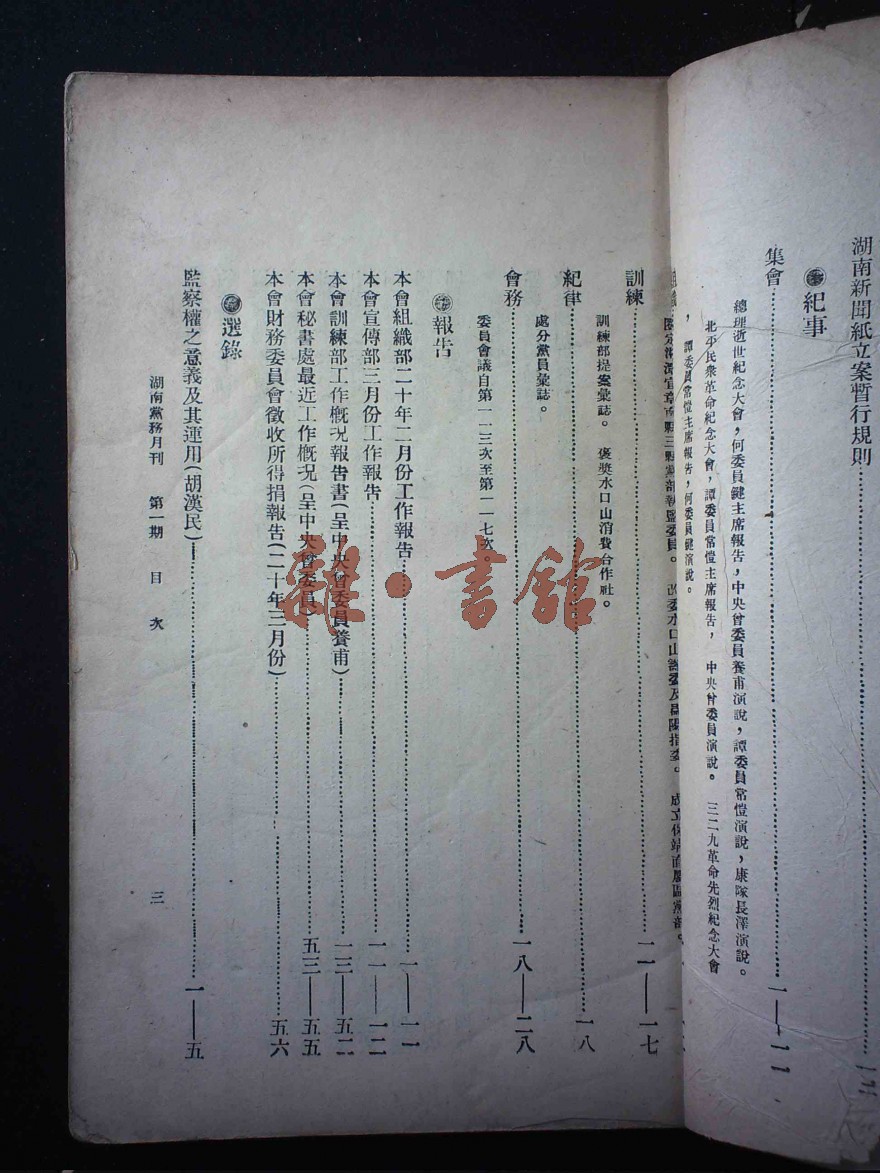 湖南新聞紙立案暫行規則
紀事
集會 一——一一
總理逝世紀念大會，何委員鍵主席報告，中央曾委員養甫演說，譚委員常愷演說，康隊長澤演說。
北平民衆革命紀念大會，譚委員常愷主席報告，中央曾委員演說。 三二九革命先烈紀念大會
，譚委員常愷主席報告，何委員鍵演說。
三縣黨部執監委員。 改委水口山 成立保靖
訓練 一一——一七
訓練部提案彙誌。 褒獎水口山消費合作社。
紀律 一八
處分黨員彙誌。
會務 一八——二八
委員會議自第一一三次至第一一七次。
報告
本會組織部二十年二月份工作報告 一——一一
本會宣傳部三月份工作報告 一一——一二
本會訓練部工作概況報告書（呈中央曾委員養甫） 一三——五二
本會秘書處最近工作概況（呈中央曾委員） 五三——五五
本會財務委員會徵收所得捐報告（二十年三月份） 五六
選錄
監察權之意義及其運用（胡漢民） 一——五
湖南黨務月刊 第一期 目次 三
雜·書館